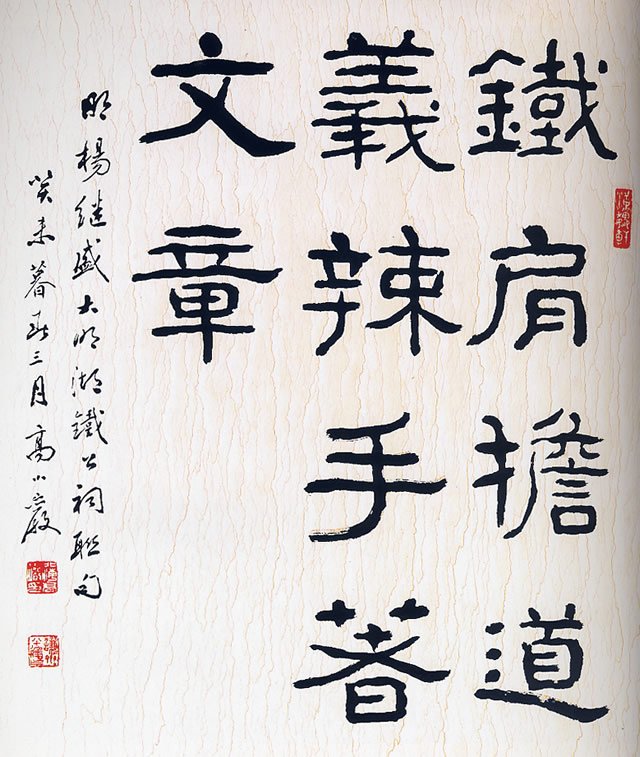 鐵肩擔道
義辣手著
文章
明楊继盛大明湖鐵公祠联句
癸未暮春三月高小巖